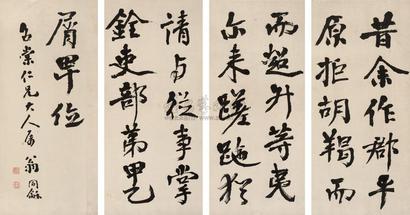 昔余作郡平
原拒胡羯而
而超升等夷
尒來蹉跎猶
請与從事掌
銓吏部第甲乙
屑卑位
棠仁兄大人屬
翁同龢